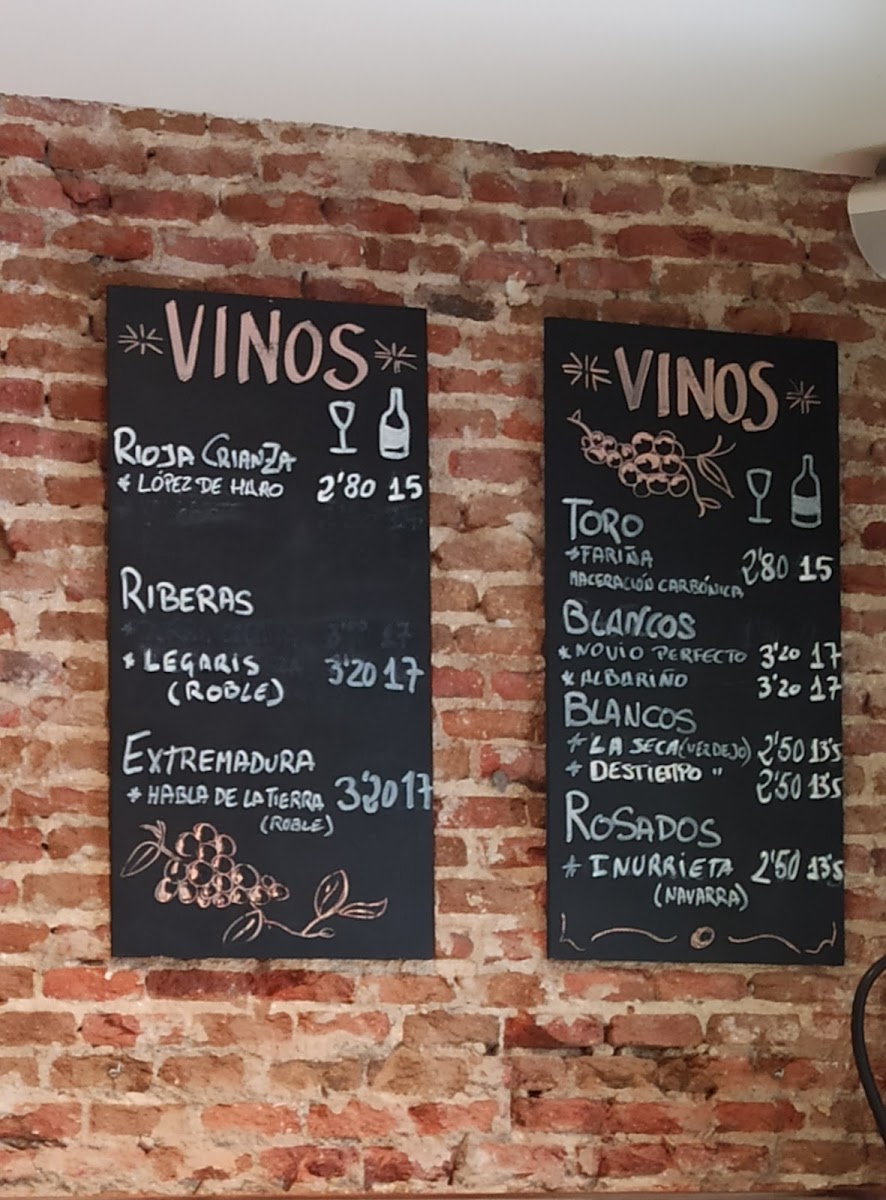 VINOS
RIOJA CRIANZA
* LÓPEZ DE HARO 2'80 15
RIBERAS
* LEGARIS 3'20 17
(ROBLE)
EXTREMADURA
* HABLA DE LA TIERRA 3'20 17
(ROBLE)
VINOS
TORO
* FARIÑA 2'80 15
MACERACIÓN CARBÓNICA
BLANCOS
* NOVIO PERFECTO 3'20 17
* ALBARIÑO 3'20 17
BLANCOS
* LA SECA (VERDEJO) 2'50 13'5
* DESTIEMPO " 2'50 13'5
ROSADOS
* INURRIETA 2'50 13'5
(NAVARRA)